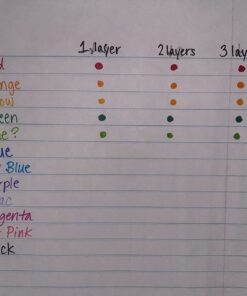 1 layer 2 layers 3 lay
d
nge
ow
een
e?
ue
Blue
rple
ac
genta
Pink
ck